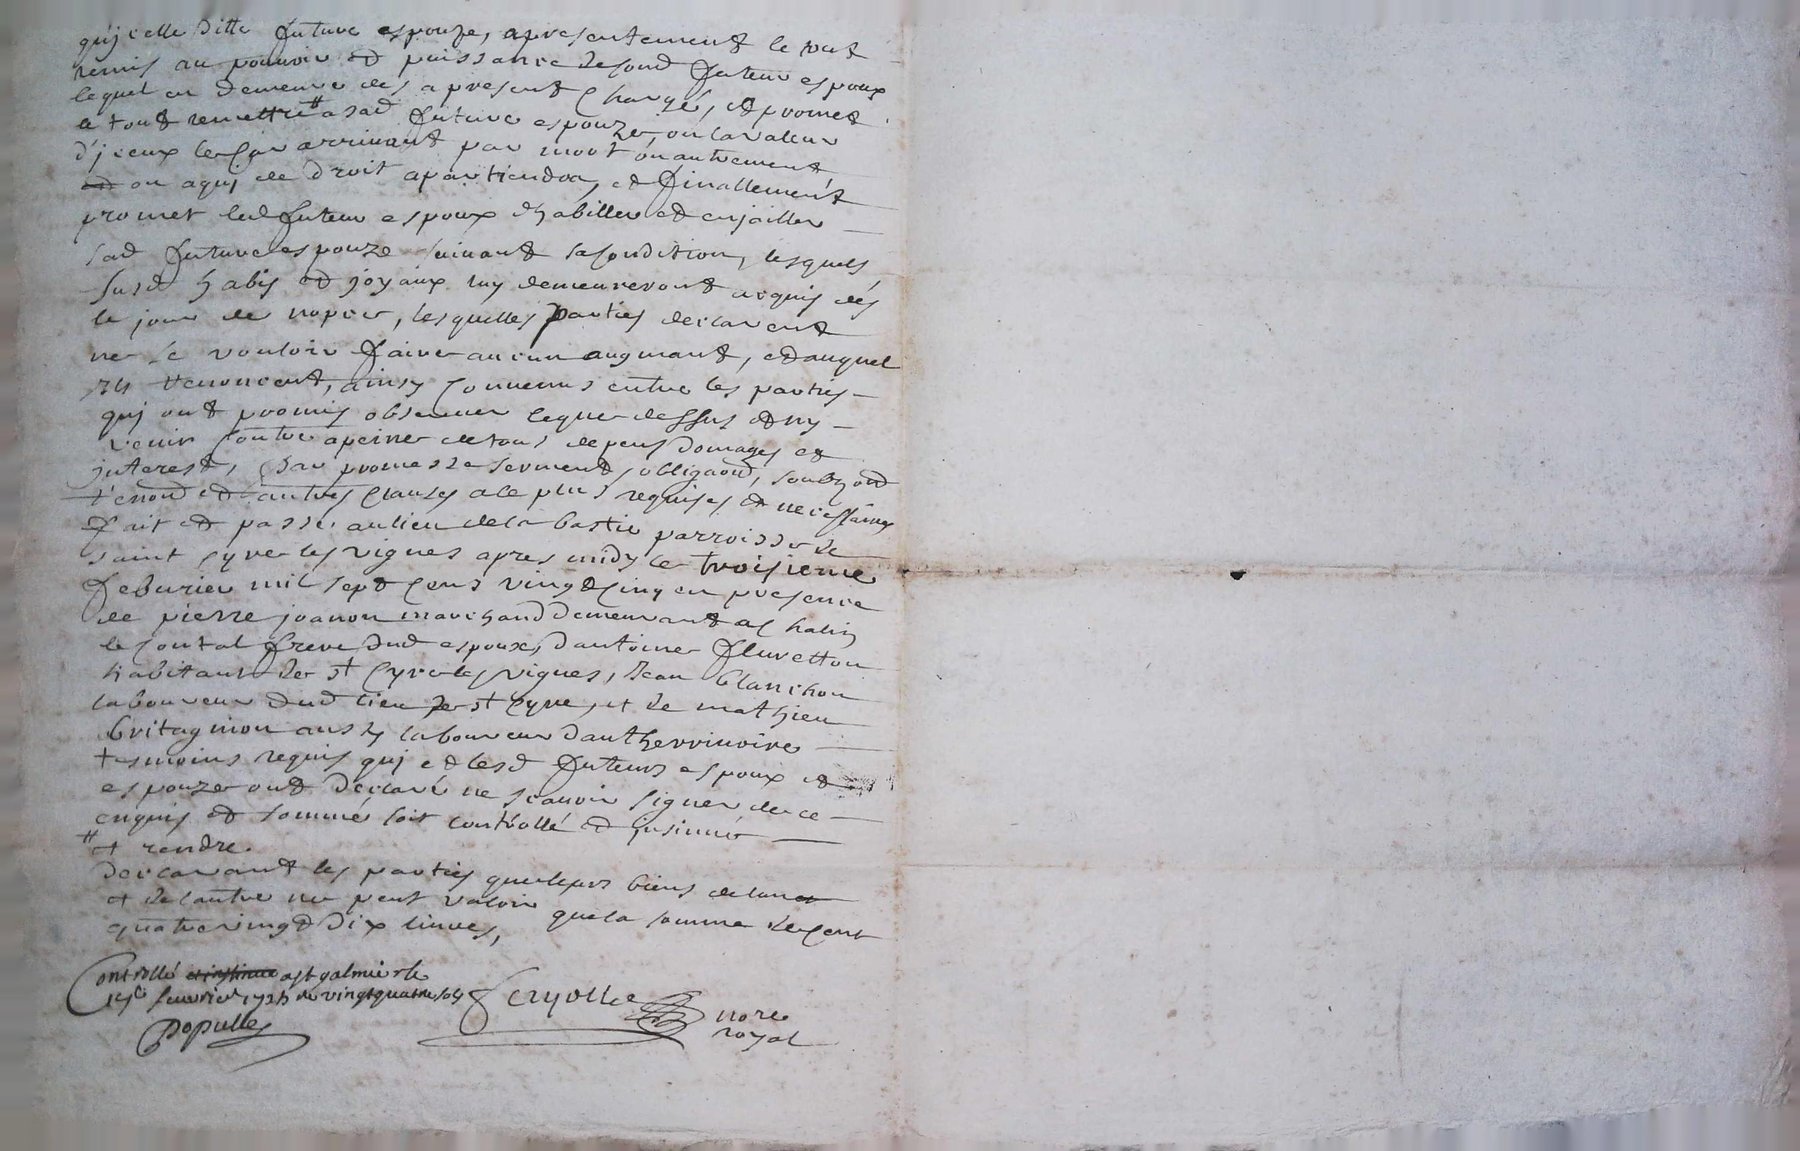 qu'jcelle ditte future espouze, apresentement le tout
remis au pouvoir et puissance desond futeur espoux
lequel en demeure dés apresent chargé, et promet
a tout remettre # asad future espouze, ou lavaleur
d'jceux lecas arrivant par mort ou autrement
ou aquj de droit apartiendra, et finallement
promet led futeur espoux d'habiller et enjoiller
sad future espouze suivant sa condition, lesquels
susd habis et joyaux luy demeureront acquis dés
le jour de nopces, lesquelles parties declarent
ne se vouloir faire aucun augmant, et auquel
ils renoncent, ainsy convenus entre les parties
quj ont promis observer ceque dessus et ny
venir contre apeine de tous depens domages et
interest, par promesse serment, obligaond, soubzond
renond et autres clauses ale plus requises et necessaires
fait et passé au lieu dela bastie parroisse de
saint cyre les vignes apres midy le troisieme
feburier mil sept cens vingt cinq en presence
de pierre joanon marchand demeurant a chalin
le contal frere dud espoux, d'antoine fluretton
habitant de st cyre les vignes, Jean blanchon
laboureur dud lieu de st cyre, et de mathieu
britagnion aussy laboureur dautherrivoire
tesmoins requis quj et lesd futeurs espoux et
espouze ont declaré ne scavoir signer de ce
enquis et sommés soit contrôllé et jnsinué
# et rendre.
declarant les parties que leurs biens de lun
et de lautre ne peut valoir que la somme de cent
quatrevingt dix livres,
Controllé et insinué a st galmier le
15e fevrier 1725 re vingt quatre sols
Populle
Feryolle
nore
royal